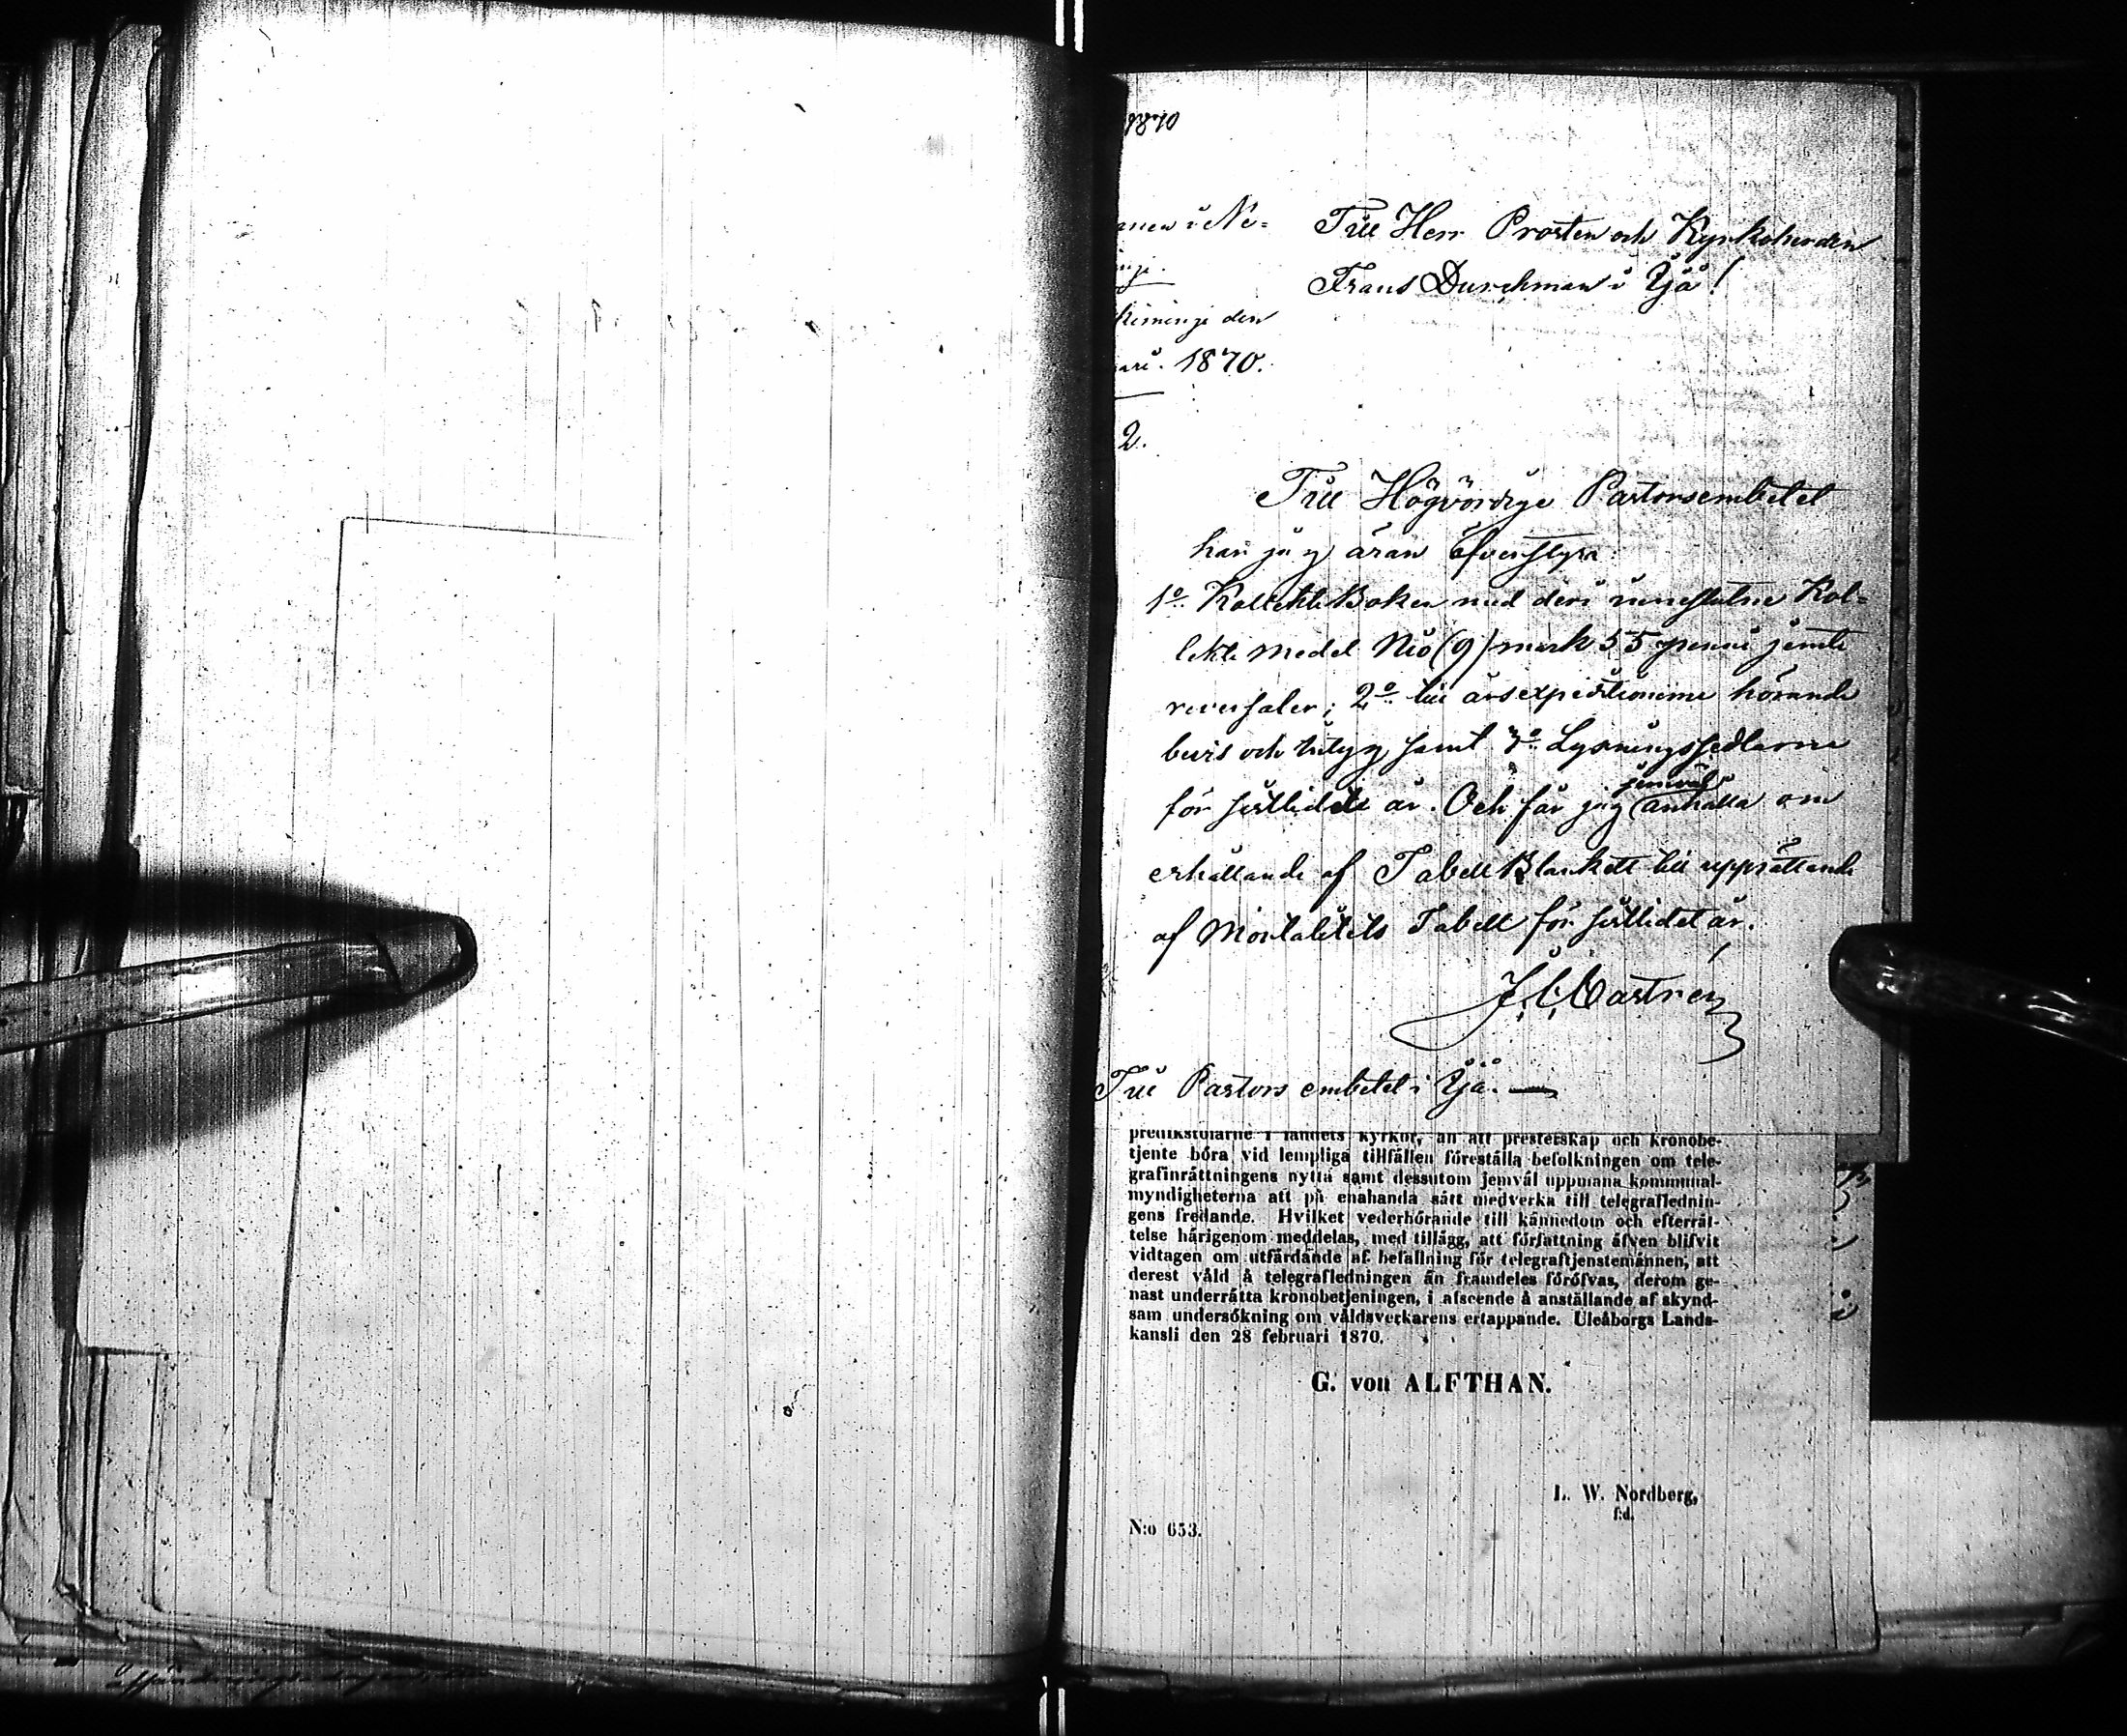 1870
Till Herr Prosten och Kyrkoherden
Frans Durchman i Ijå!
kiminge den
1870.
2.
Till Högvördige Pastorsembetet
har jag äran öfverstyra:
1o. KollektBoken med deri innestutne Kol-
lekte medel Nio (9) mark 55 penni jemte
reversaler; 2o. till årsexpeditionerne hörande
bevis och intyg samt 3o. Lysningssedlarne
för sistlidet år. Och får jag jemväl anhålla om
erhållande af Tabell Blankett till upprättande
af Mortalitets Tabell för sistlidet år.
J. C. Castrén
Till Pastors embetet i Ijå. —
predikstolarne i landets kyrkor, än att presterskap och kronobe-
tjente böra vid lempliga tillfällen föreställa befolkningen om tele-
grafinrättningens nytta samt dessutom jemväl uppmana kommunal-
myndigheterna att på enahanda sätt medverka till telegraflednin-
gens fredande. Hvilket vederbörande till kännedom och efterrät-
telse härigenom meddelas, med tillägg, att författning äfven blifvit
vidtagen om utfärdande af befallning för telegraftjenstemännen, att
derest våld å telegrafledningen än framdeles föröfvas, derom ge-
nast underrätta kronobetjeningen, i afseende å anställande af skynd-
sam undersökning om våldsverkarens ertappande. Uleåborgs Lands-
kansli den 28 februari 1870.
G. von ALFTHAN.
L. W. Nordberg,
f:d.
N:o 653.